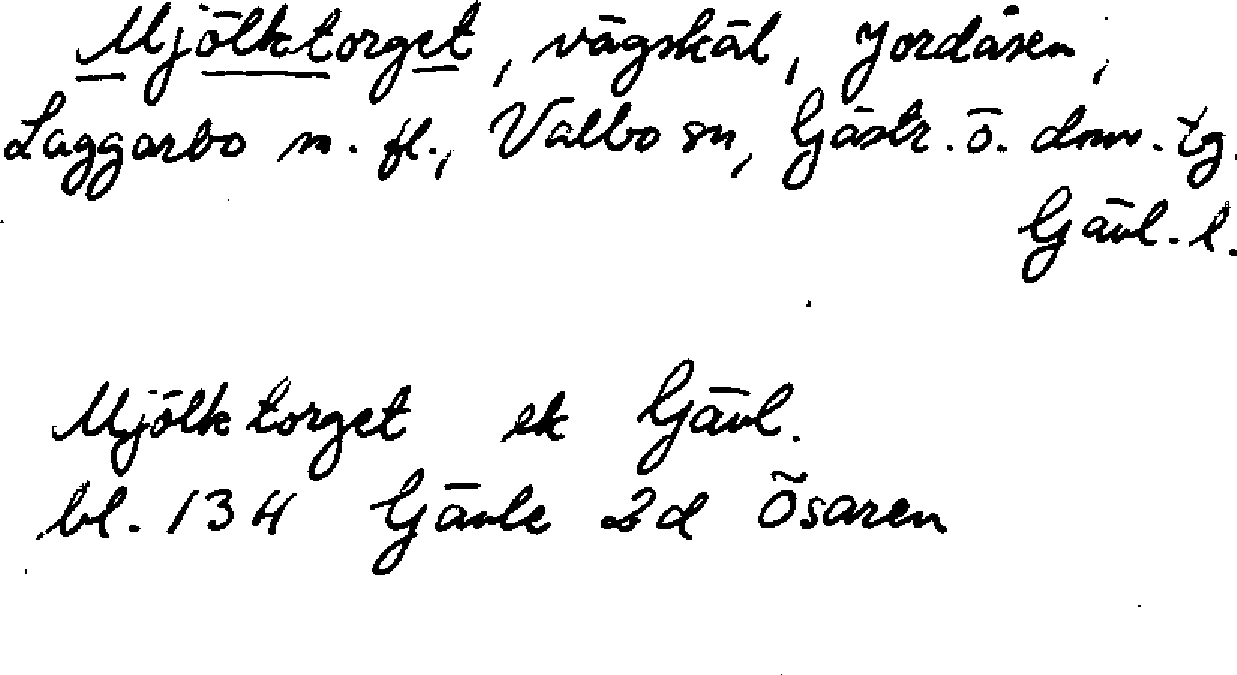 Mjölktorget, vägskäl, Jordåsen,
Laggarbo m. fl., Valbo sn, Gästr. ö. dmv. tg.
Gävl. l.
Mjölktorget ek Gävl.
bl. 134 Gävle 2d Ösaren